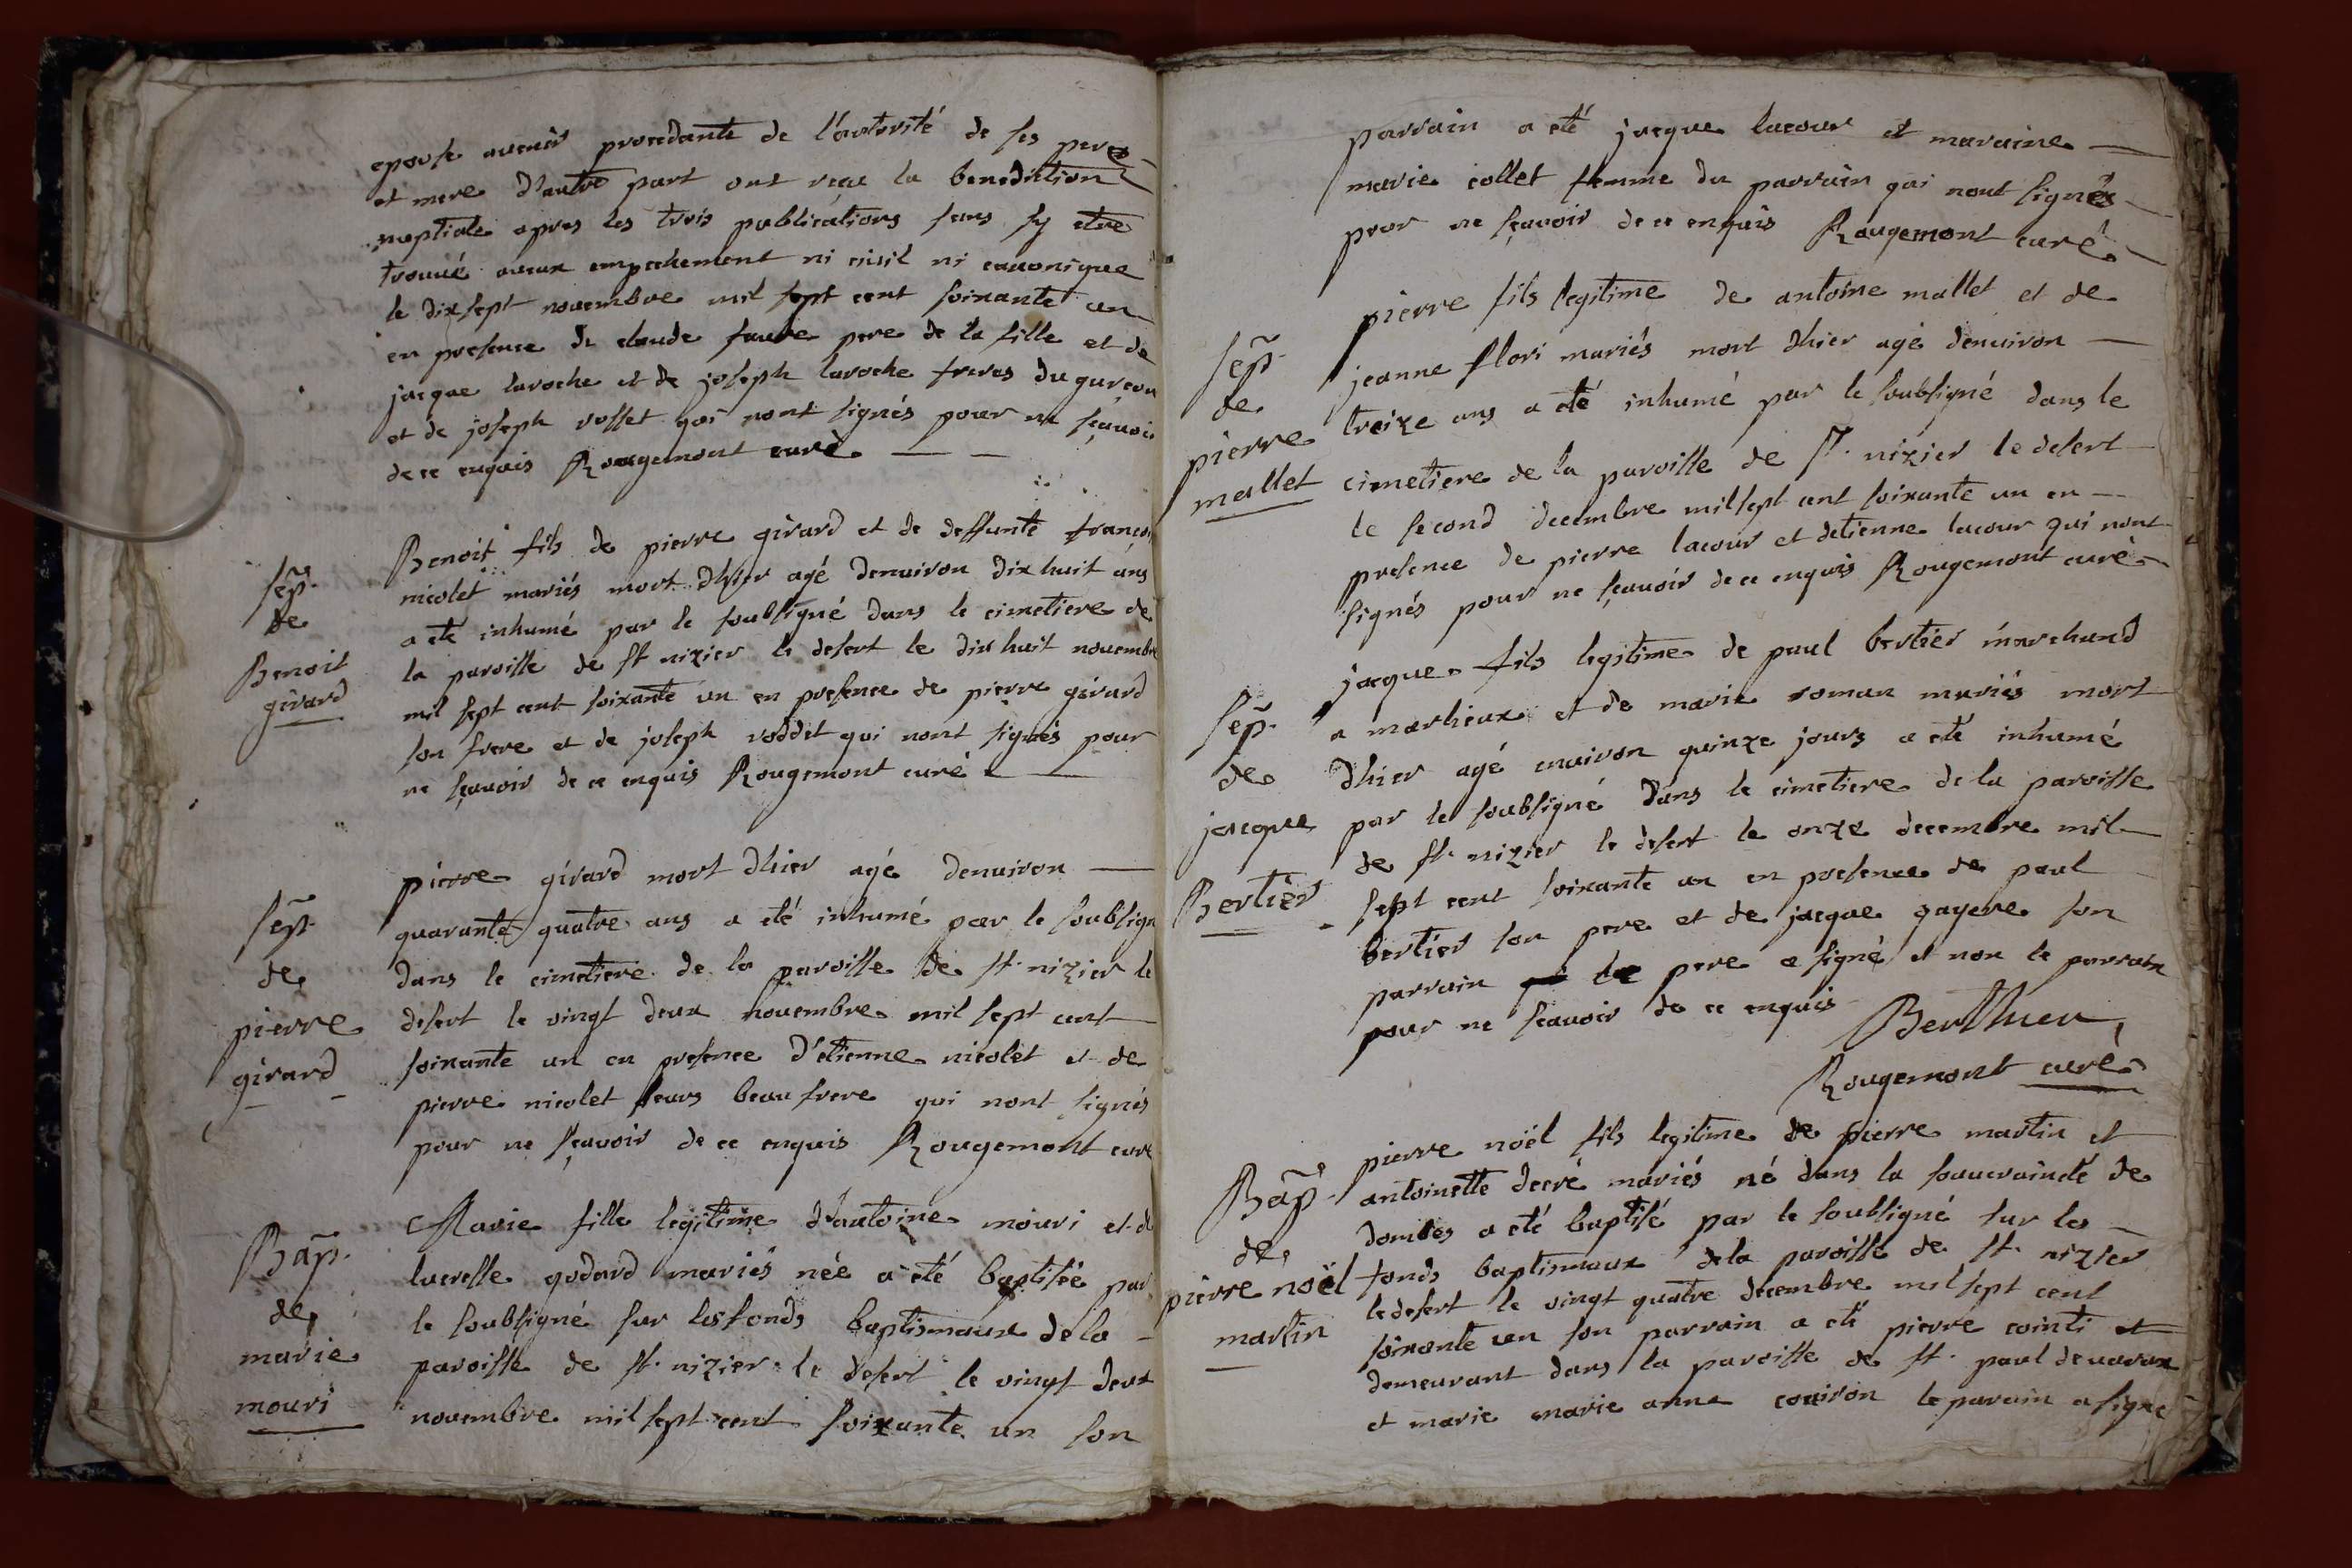 epouse avenir procedante de l'autorité de ses pere
et mere d'autre part ont recu la benediction
nuptiale apres les trois publications sans sy etre
trouué aucun empechement ni ciuil ni canonique
le dix sept nouembre mil sept cent soixante un
en presence de claude faure pere de la fille et de
jacque laroche et de joseph laroche freres du garcon
et de joseph rosset qui nont signés pour ne sçauoir
de ce enquis Rougemont curé
Sep.
de
Benoit
girard
Benoit fils de pierre girard et de deffunte francoi
nicolet mariés mort dhier agé denuiron dix huit ans
a eté inhumé par le soubsigné dans le cimetiere de
la paroisse de st nizier le desert le dix huit nouembre
mil sept cent soixante un en presence de pierre girard
son frere et de joseph roddet qui nont signés pour
ne sçauoir de ce enquis Rougemont curé
Sep.
de
pierre
girard
pierre girard mort dhier agé denuiron
quarante quatre ans a eté inhumé par le soubsigné
dans le cimetiere de la paroisse de st. nizier le
desert le vingt deux nouembre mil sept cent
soixante un en presence d'etienne nicolet et de
pierre nicolet leurs beau frere qui nont signés
pour ne sçauoir de ce enquis Rougemont curé
Bap.
de
marie
mouri
Marie fille legitime d'antoine mouri et de
lucresse godard mariés née a eté baptisée par
le soubsigné sur les fonds baptismaux de la
paroisse de st. nizier le desert le vingt deux
nouembre mil sept cent soixante un son
parrain a eté jacque lacour et maraine
marie collet femme du parrain qui nont signés
pour ne sçauoir de ce enquis Rougemont curé
Sep.
de
pierre
mallet
pierre fils legitime de antoine mallet et de
jeanne flori mariés mort dhier agé denuiron
treize ans a eté inhumé par le soubsigné dans le
cimetiere de la paroisse de st. nizier le desert
le second decembre mil sept cent soixante un en
presence de pierre lacour et detienne lacour qui nont
signés pour ne sçauoir de ce enquis Rougemont curé
Sep.
de
jacque
Bertier
jacque fils legitime de paul bertier marchand
a marlieux et de marie roman mariés mort
dhier agé enuiron quinze jours a eté inhumé
par le soubsigné dans le cimetiere de la paroisse
de st. nizier le desert le onze decembre mil
sept cent soixante un en presence de paul
bertier son pere et de jacque gayere son
parrain le pere a signé et non le parrain
pour ne scauoir de ce enquis Berthier
Rougemont curé
Bap.
de
pierre noël
martin
pierre noël fils legitime de pierre martin et
antoinette decré mariés né dans la souuraineté de
dombes a eté baptisé par le soubsigné sur les
fonds baptismaux dela paroisse de st. nizier
le desert le vingt quatre decembre mil sept cent
soixante un son parrain a eté pierre cointi et
demeurant dans la paroisse de st. paul de varax
et marie marie anne couiron le parain a signé